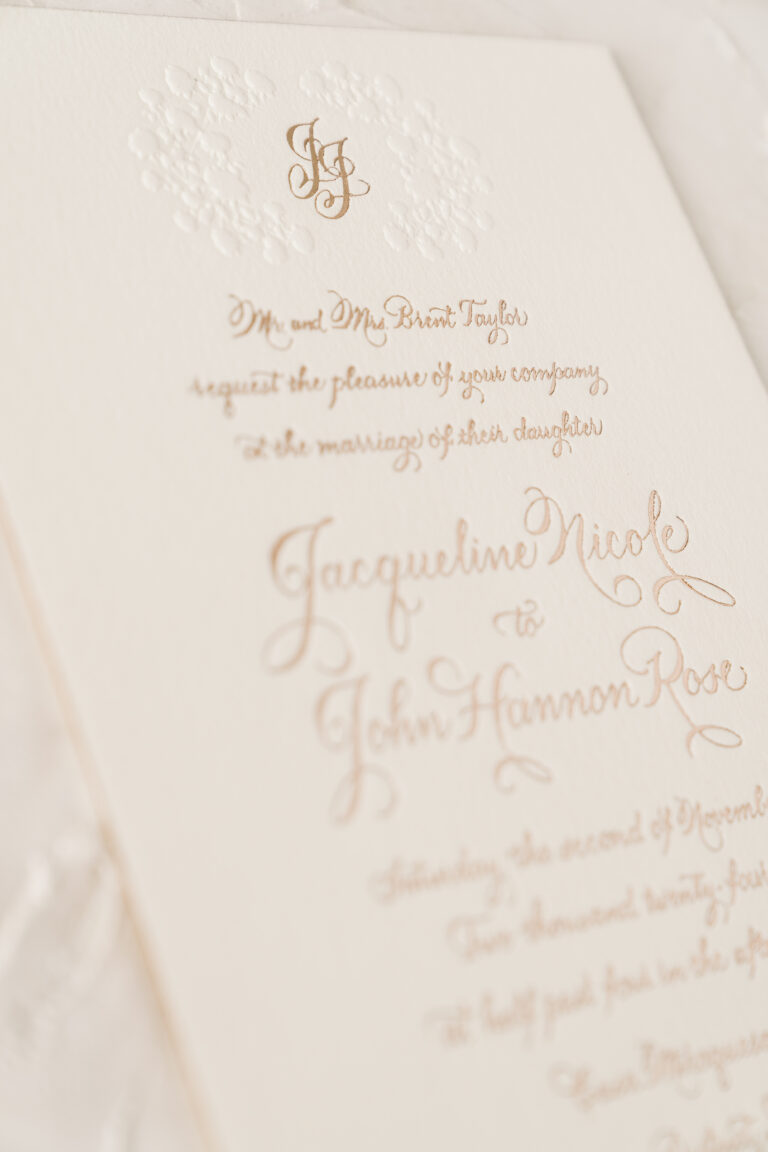 JJ
Mr. and Mrs. Brent Taylor
request the pleasure of your company
at the marriage of their daughter
Jacqueline Nicole
to
John Hannon Rose
Saturday, the second of Novemb
Two thousand twenty-four
at half past four in the aft